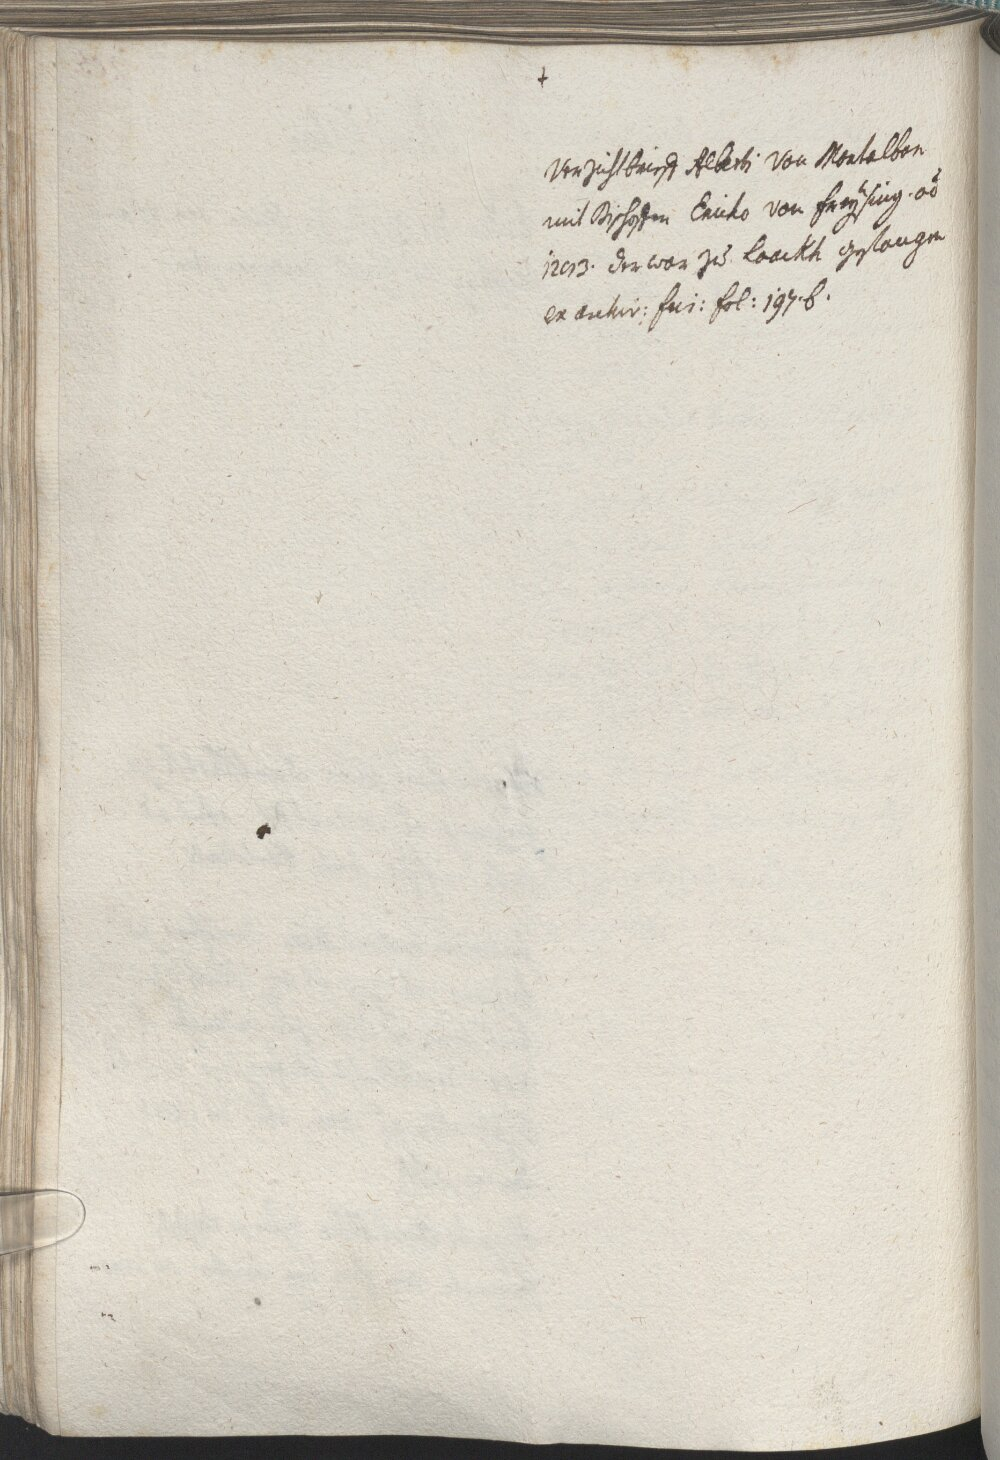 †
Verzichtbrieff Alberti von Montalban
mit Bischoffen Emicho von Freysing. ao
1293. der war zu Laackh gefangen
ex archiv: fris: fol: 197.b.